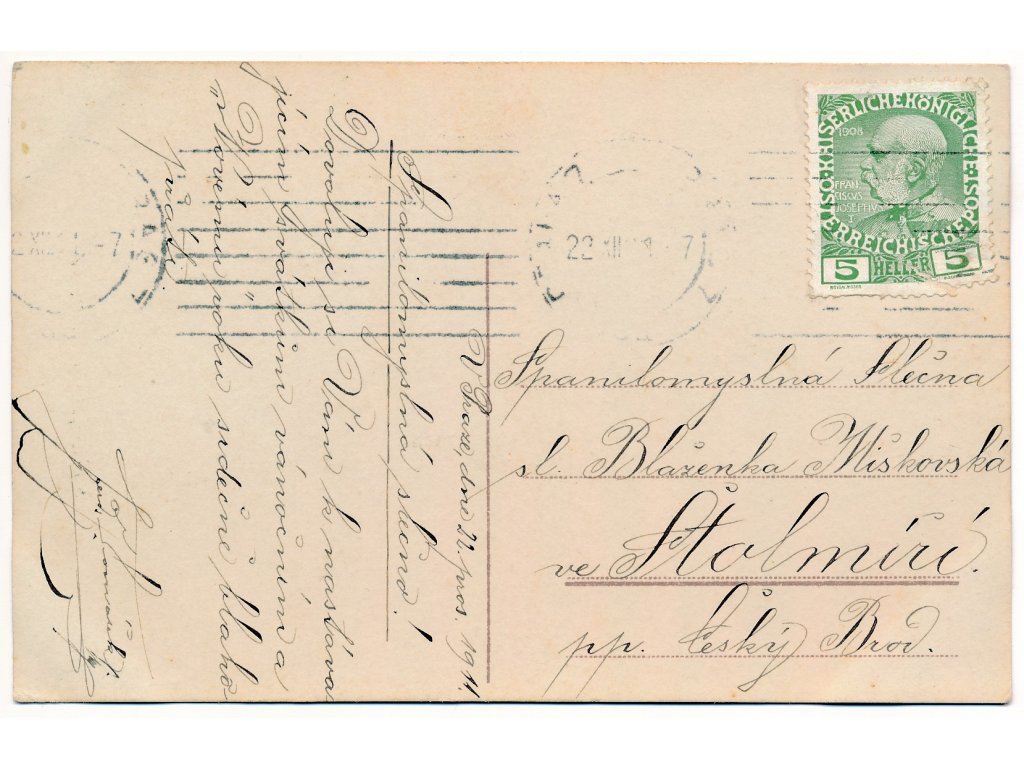 V Praze, dne 22. pros. 1911.
Spanilomyslná slečno!
Dovoluji si Vám k nastáva-
jícím svátkům vánočním a
Novému roku srdečně blaho-
přáti
KAISERLICHE KÖNIGLICHE
ÖSTERREICHISCHE POST
1908
FRAN
CISCUS
JOSEPHVS
I
5 HELLER 5
22 XII 11 7
Spanilomyslná Slečna
sl. Blaženka Miškovská
ve Štolmíři.
pp. Český Brod.